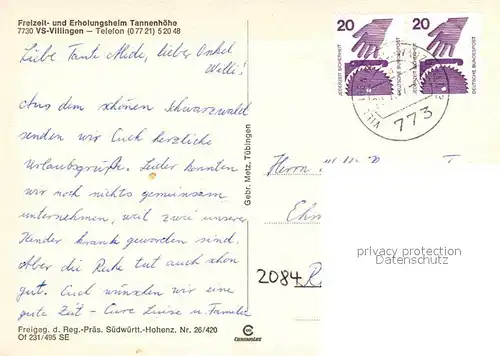 Freizeit- und Erholungsheim Tannenhöhe
7730 VS-Villingen – Telefon (0 77 21) 5 20 48
Liebe Tante Alide, lieber Onkel
Willi!
Aus dem schönen Schwarzwald
senden wir Euch herzliche
Urlaubsgrüße. Leider konnten
wir noch nichts gemeinsam
unternehmen, weil zwei unserer
Kinder krank geworden sind.
Aber die Ruhe tut auch schon
gut. Euch wünschen wir eine
gute Zeit – Eure Luise u. Familie
Freigeg. d. Reg.-Präs. Südwürtt.-Hohenz. Nr. 26/420
Of 231/495 SE
Gebr. Metz, Tübingen
Cramerdias
20
JEDERZEIT SICHERHEIT
DEUTSCHE BUNDESPOST
20
JEDERZEIT SICHERHEIT
DEUTSCHE BUNDESPOST
773
Herrn
Ehm
2084 R
privacy protection
veikkos.com